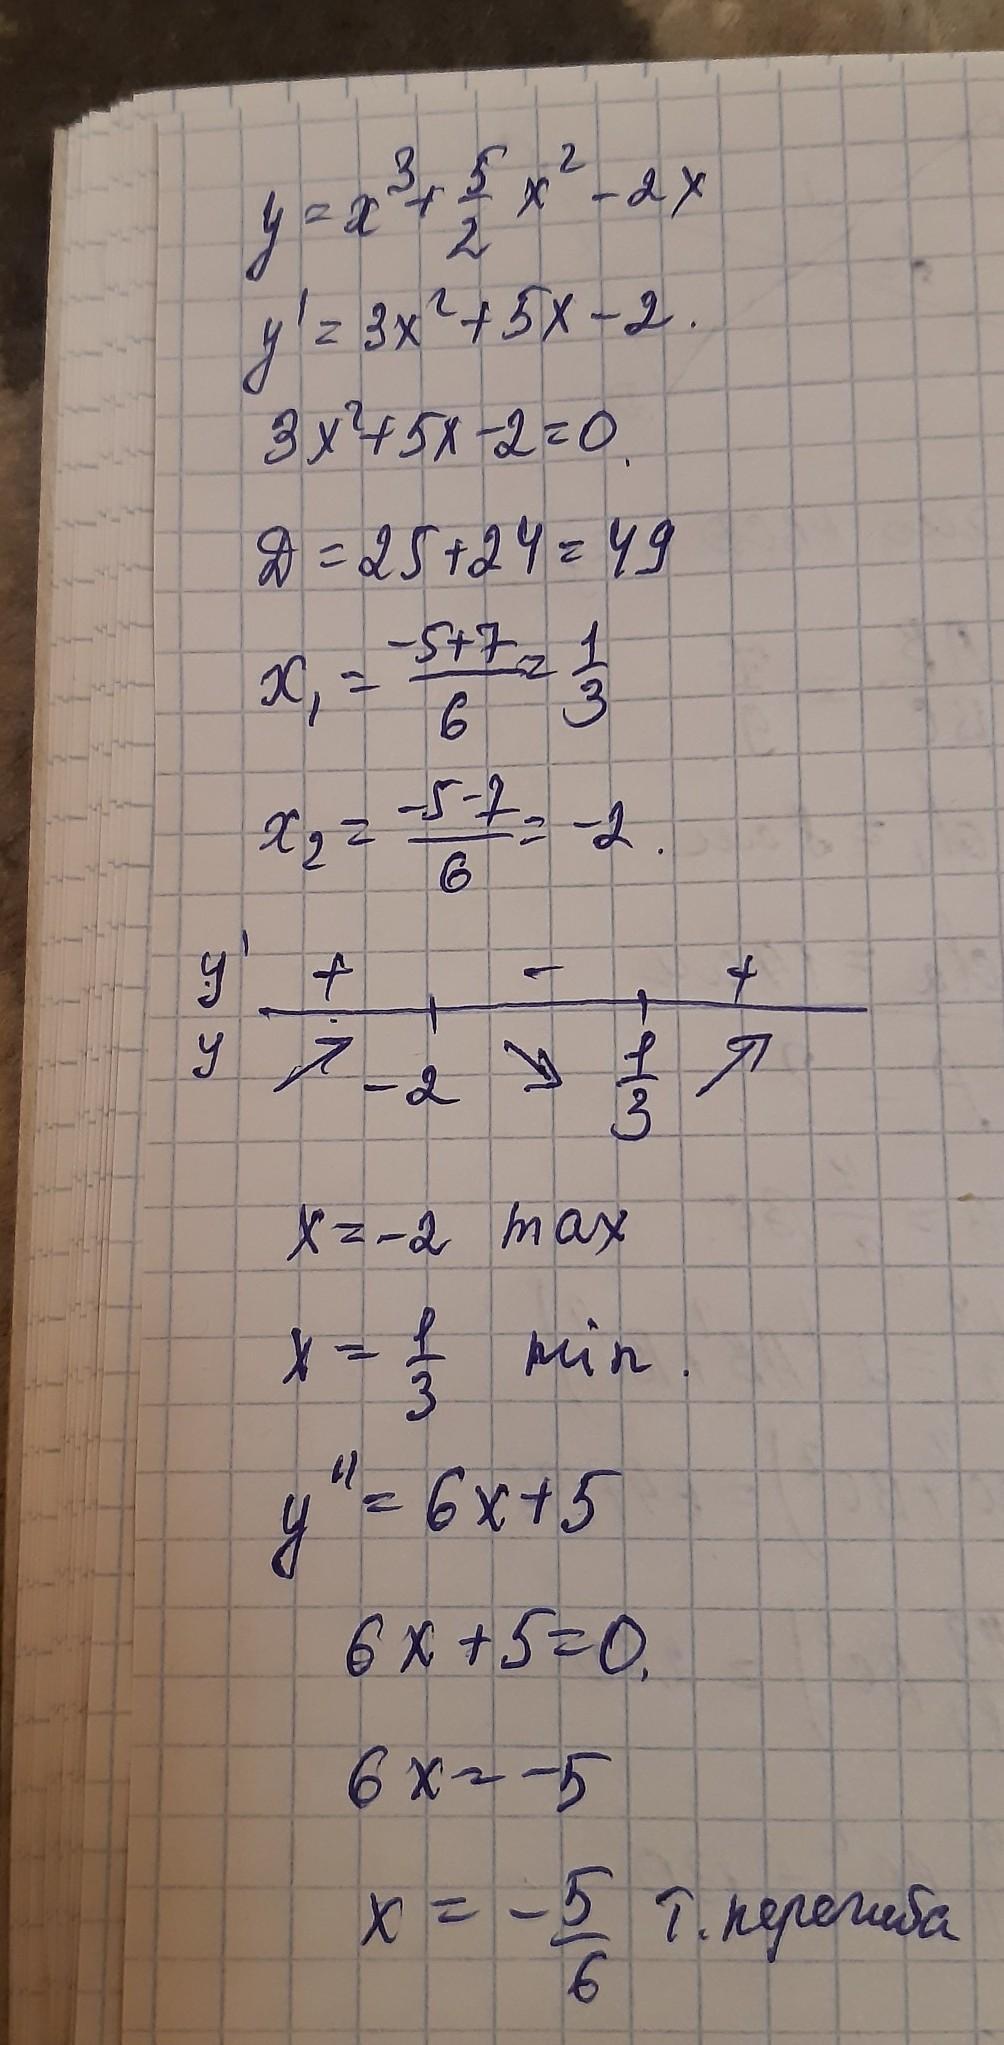 y = x³ + 5/2 x² - 2x
y' = 3x² + 5x - 2.
3x² + 5x - 2 = 0.
Д = 25 + 24 = 49
x₁ = (-5+7)/6 = 1/3
x₂ = (-5-7)/6 = -2.
y' + - +
y ↗ -2 ↘ 1/3 ↗
x = -2 max
x = 1/3 min.
y'' = 6x + 5
6x + 5 = 0.
6x = -5
x = -5/6 т. перегиба